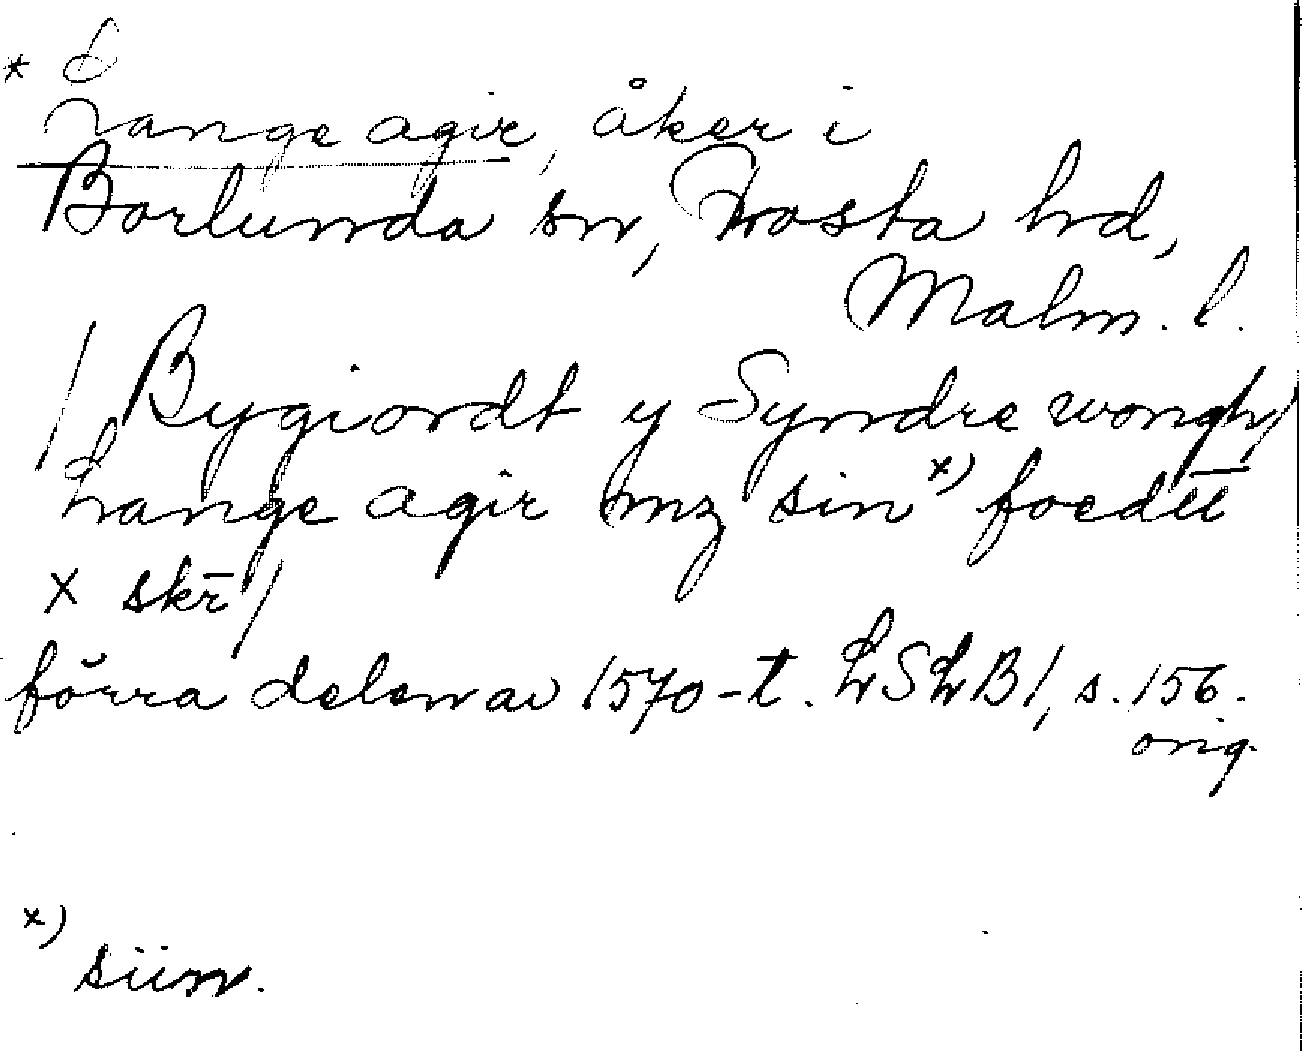 * Lange agir, åker i
Borlunda sn, Frosta hd,
Malm. l.
/ Bygiordt y Syndre wongh/
Lange agir mz sin x) foedū
X skr̄ /
förra delen av 1570-t. LSLB1, s. 156.
orig.
x) siin.